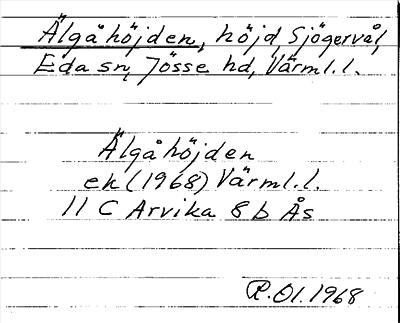 Älgåhöjden, höjd, Sjögervål,
Eda sn, Jösse hd, Värml.l.
Älgåhöjden
ek (1968) Värml.l.
11 C Arvika 8b Ås
R.Ol.1968